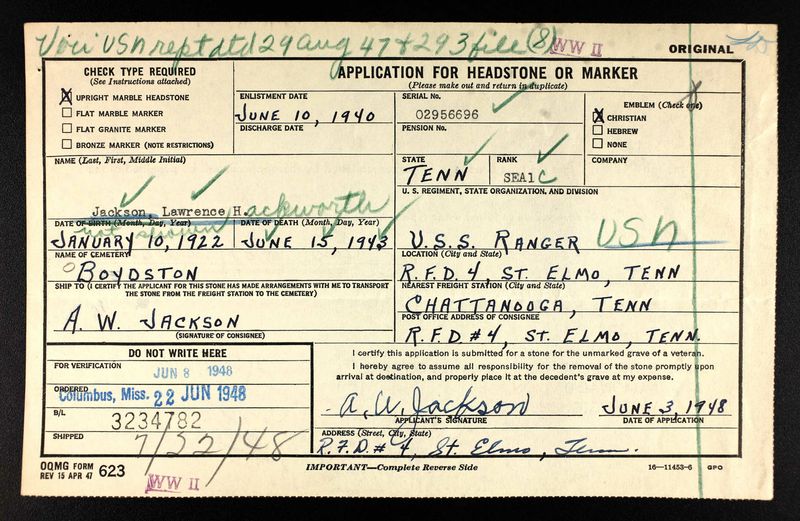 Vou USN rept dtd 29 Aug 47 & 293 file (8) WW II
ORIGINAL
CHECK TYPE REQUIRED
(See Instructions attached)
X UPRIGHT MARBLE HEADSTONE
FLAT MARBLE MARKER
FLAT GRANITE MARKER
BRONZE MARKER (NOTE RESTRICTIONS)
APPLICATION FOR HEADSTONE OR MARKER
(Please make out and return in duplicate)
ENLISTMENT DATE
JUNE 10, 1940
DISCHARGE DATE
SERIAL No.
02956696
PENSION No.
EMBLEM (Check one)
X CHRISTIAN
HEBREW
NONE
NAME (Last, First, Middle Initial)
Jackson, Lawrence H.ackworth
STATE
TENN
RANK
SEA1C
COMPANY
U. S. REGIMENT, STATE ORGANIZATION, AND DIVISION
U.S.S. RANGER USN
DATE OF BIRTH (Month, Day, Year)
not shown
JANUARY 10, 1922
DATE OF DEATH (Month, Day, Year)
JUNE 15, 1943
NAME OF CEMETERY
BOYDSTON
LOCATION (City and State)
R.F.D. 4, ST. ELMO, TENN
SHIP TO (I CERTIFY THE APPLICANT FOR THIS STONE HAS MADE ARRANGEMENTS WITH ME TO TRANSPORT
THE STONE FROM THE FREIGHT STATION TO THE CEMETERY)
A. W. JACKSON
(SIGNATURE OF CONSIGNEE)
NEAREST FREIGHT STATION (City and State)
CHATTANOOGA, TENN
POST OFFICE ADDRESS OF CONSIGNEE
R.F.D #4, ST. ELMO, TENN.
DO NOT WRITE HERE
FOR VERIFICATION
JUN 8 1948
ORDERED
Columbus, Miss. 22 JUN 1948
B/L
3234782
SHIPPED
7/22/48
I certify this application is submitted for a stone for the unmarked grave of a veteran.
I hereby agree to assume all responsibility for the removal of the stone promptly upon
arrival at destination, and properly place it at the decedent's grave at my expense.
A. W. Jackson
APPLICANT'S SIGNATURE
JUNE 3, 1948
DATE OF APPLICATION
ADDRESS (Street, City, State)
R.F.D. # 4, St. Elmo, Tenn.
OQMG FORM 623
REV 15 APR 47
WW II
IMPORTANT—Complete Reverse Side
16—11453-6 GPO